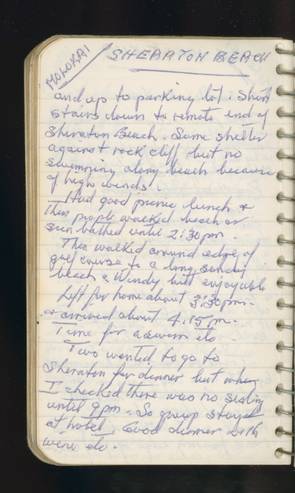 MOLOKAI
SHERATON BEACH
and up to parking lot. Short
stairs down to remote end of
Sheraton Beach. Some shelter
against rock cliff but no
swimming along beach because
of high winds.
Had good picnic lunch &
then people walked beach or
sun bathed until 2:30pm
Then walked around edge of
golf course to a long sandy
beach & Windy but enjoyable
Left for home about 3:30pm.
& arrived about 4.15pm.
Time for a swim etc
Two wanted to go to
Sheraton for dinner but when
I checked there was no seating
until 9pm. So group stayed
at hotel. Good dinner with
wine etc.